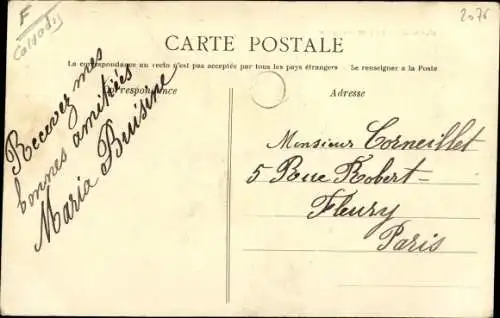 F
Calvados
2076
CARTE POSTALE
La correspondance au recto n'est pas acceptée par tous les pays étrangers — Se renseigner a la Poste
Correspondance
Adresse
Recevez mes
bonnes amitiés
Maria Buisine
Monsieur Corneillet
5 Rue Robert-
Fleury
Paris